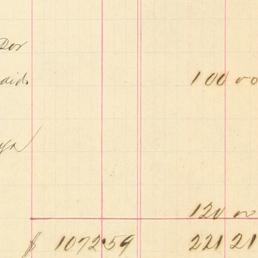 Dor
aid 100 00
120 00
$ 1072.59 221 21